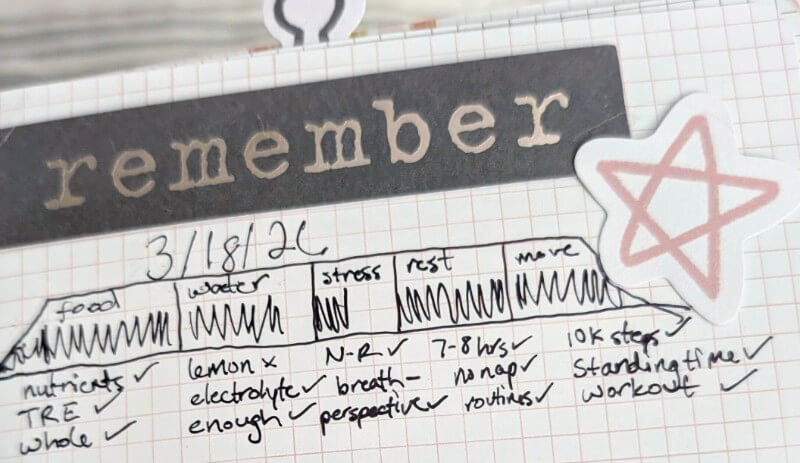 remember
3/18/26
food water stress rest move
nutrients ✓ lemon x N-R ✓ 7-8 hrs ✓ 10K steps ✓
TRE ✓ electrolyte ✓ breath – no nap ✓ standing time ✓
whole ✓ enough ✓ perspective ✓ routines ✓ workout ✓